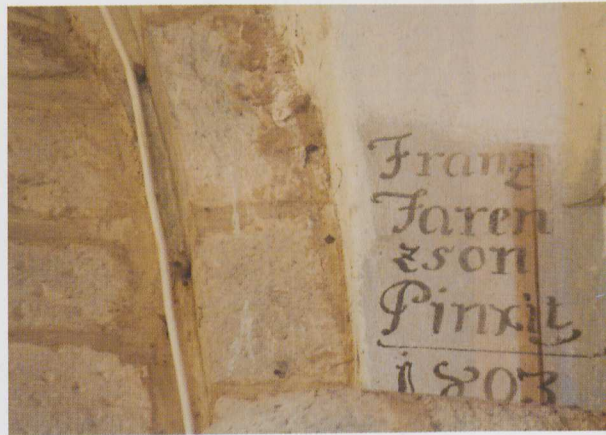 Franz
Faren
zson
Pinxit
1803